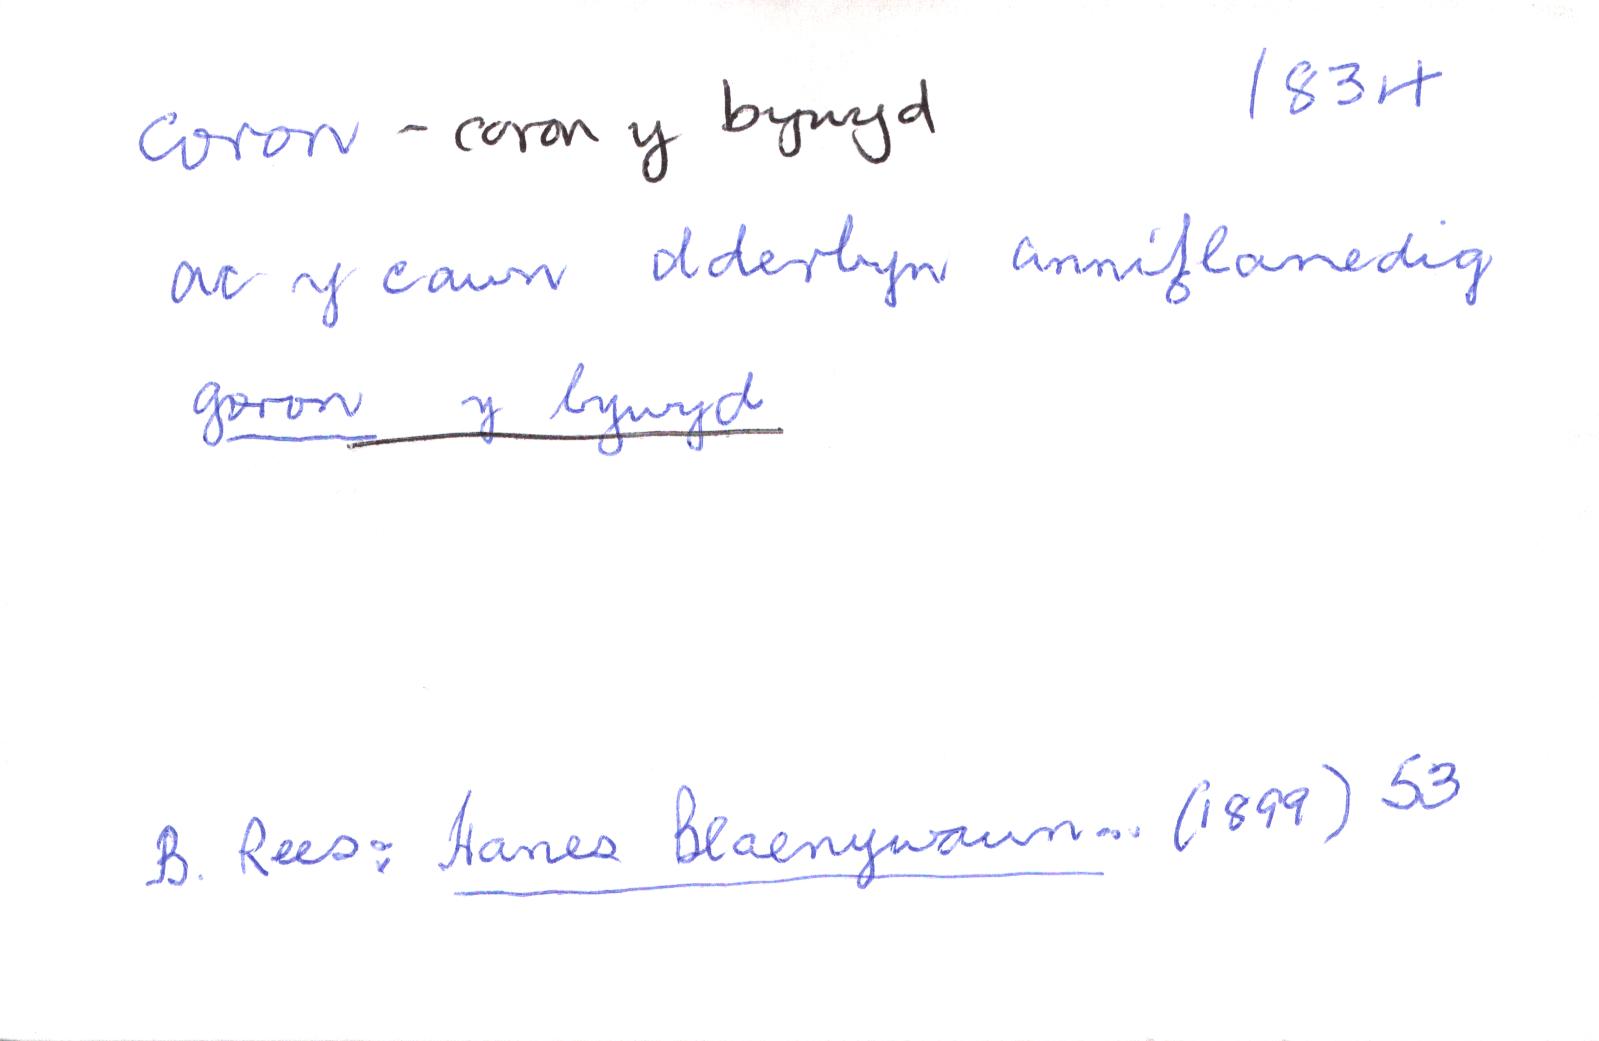 coron - coron y bywyd 1834
ac y cawn dderbyn anniflanedig
goron y bywyd
B. Rees: Hanes Blaenywaun... (1899) 53